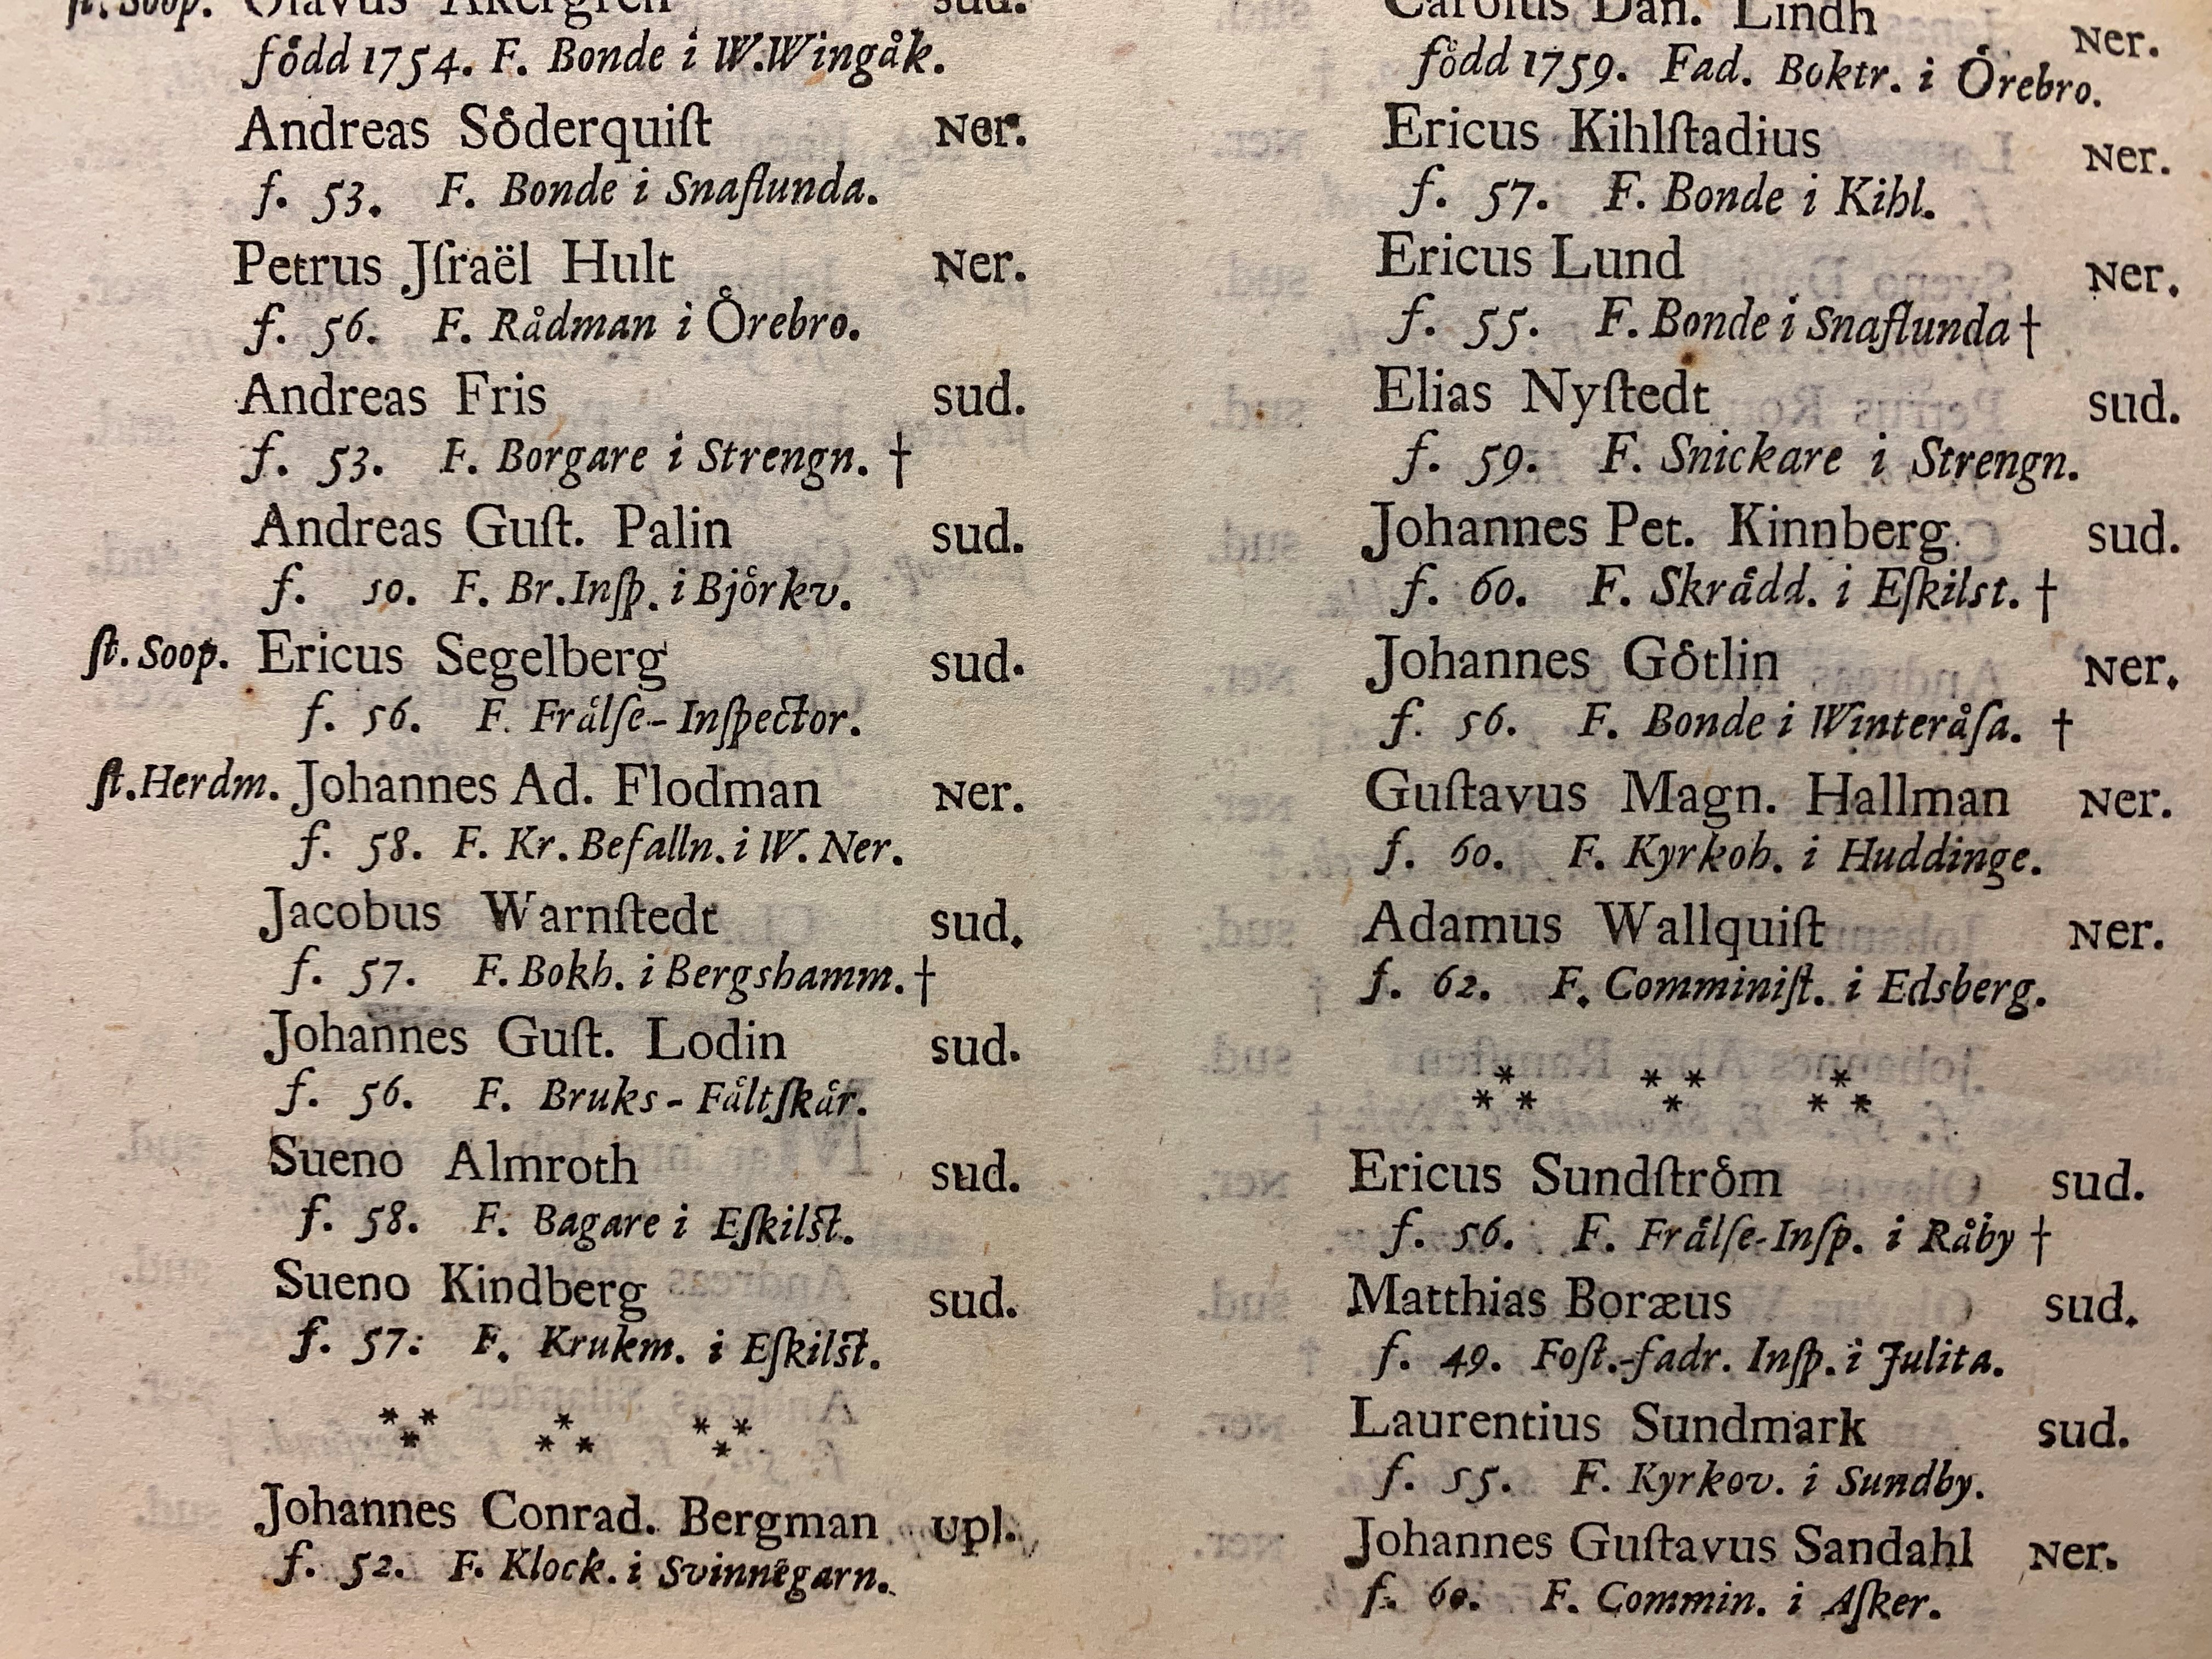 ſt. Soop. Olavus Åkergren sud.
född 1754. F. Bonde i W.Wingåk.
Andreas Söderquiſt Ner.
f. 53. F. Bonde i Snaſlunda.
Petrus Jſraël Hult Ner.
f. 56. F. Rådman i Örebro.
Andreas Fris sud.
f. 53. F. Borgare i Strengn. †
Andreas Guſt. Palin sud.
f. 50. F. Br.Inſp. i Björkv.
ſt. Soop. Ericus Segelberg sud.
f. 56. F. Frälſe-Inſpector.
ſt. Herdm. Johannes Ad. Flodman Ner.
f. 58. F. Kr. Befalln. i W. Ner.
Jacobus Warnſtedt sud.
f. 57. F. Bokh. i Bergshamm. †
Johannes Guſt. Lodin sud.
f. 56. F. Bruks-Fältſkär.
Sueno Almroth sud.
f. 58. F. Bagare i Eſkilſt.
Sueno Kindberg sud.
f. 57: F. Krukm. i Eſkilſt.
Johannes Conrad. Bergman upl.
f. 52. F. Klock. i Svinnegarn.
Carolus Dan. Lindh Ner.
född 1759. Fad. Boktr. i Örebro.
Ericus Kihlſtadius Ner.
f. 57. F. Bonde i Kihl.
Ericus Lund Ner.
f. 55. F. Bonde i Snaſlunda †
Elias Nyſtedt sud.
f. 59. F. Snickare i Strengn.
Johannes Pet. Kinnberg. sud.
f. 60. F. Skrädd. i Eſkilst. †
Johannes Götlin Ner.
f. 56. F. Bonde i Winteråſa. †
Guſtavus Magn. Hallman Ner.
f. 60. F. Kyrkoh. i Huddinge.
Adamus Wallquiſt Ner.
f. 62. F. Comminiſt. i Edsberg.
Ericus Sundſtröm sud.
f. 56. F. Frälſe-Inſp. i Råby †
Matthias Boræus sud.
f. 49. Foſt.-fadr. Inſp. i Julita.
Laurentius Sundmark sud.
f. 55. F. Kyrkov. i Sundby.
Johannes Guſtavus Sandahl Ner.
f. 60. F. Commin. i Aſker.